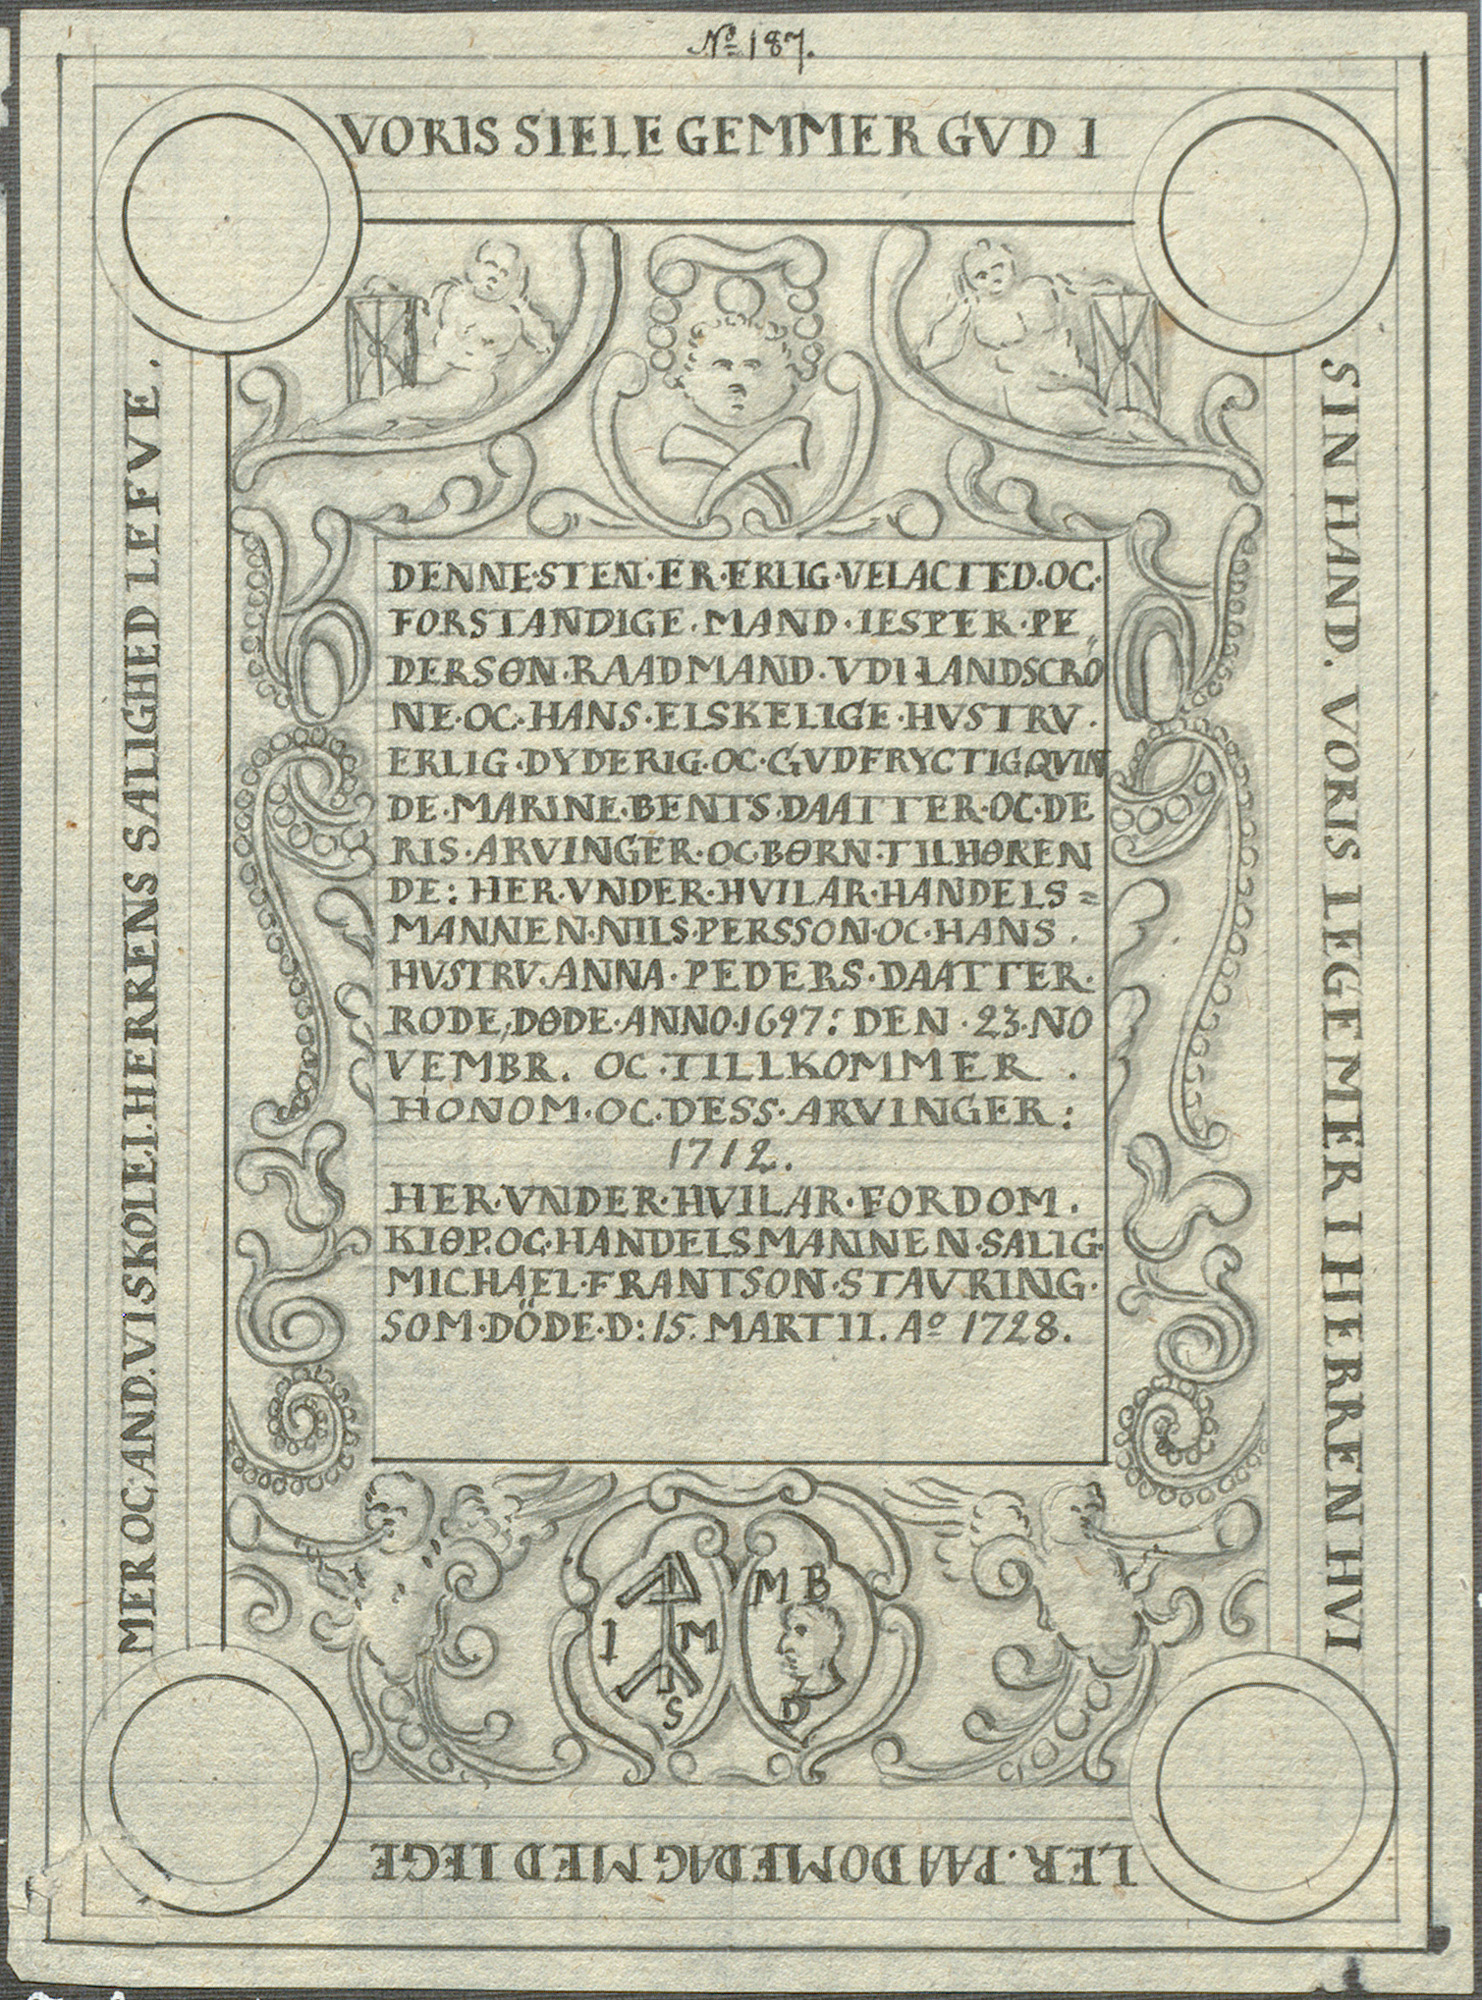 No 187.
VORIS SIELE GEMMER GVD I
SIN HAND. VORIS LEGEMER I HERREN HVI
LER. PAA DOMEDAG MED LEGE
MER OC AND. VI SKOLE.I.HERRENS SALIGHED LEFVE.
DENNE·STEN·ER·ERLIG·VELACTED·OC·
FORSTANDIGE·MAND·IESPER·PE„
DERSØN·RAADMAND·VDI LANDSCRO
NE·OC·HANS·ELSKELIGE·HVSTRV·
ERLIG·DYDERIG·OC·GVDFRYCTIG QVIN
DE·MARINE·BENTS·DAATTER·OC·DE
RIS·ARVINGER·OC BØRN·TILHØREN
DE: HER·VNDER·HVILAR·HANDELS=
MANNEN·NILS·PERSSON·OC·HANS·
HVSTRV·ANNA·PEDERS·DAATTER·
RODE, DØDE·ANNO·1697: DEN·23·NO
VEMBR. OC·TILLKOMMER.
HONOM·OC·DESS·ARVINGER:
1712.
HER·VNDER·HVILAR·FORDOM.
KIØP·OC·HANDELSMANNEN·SALIG·
MICHAEL·FRANTSON·STAVRING·
SOM·DÖDE·D: 15. MARTII. Ao 1728.
I M
S
M B
D